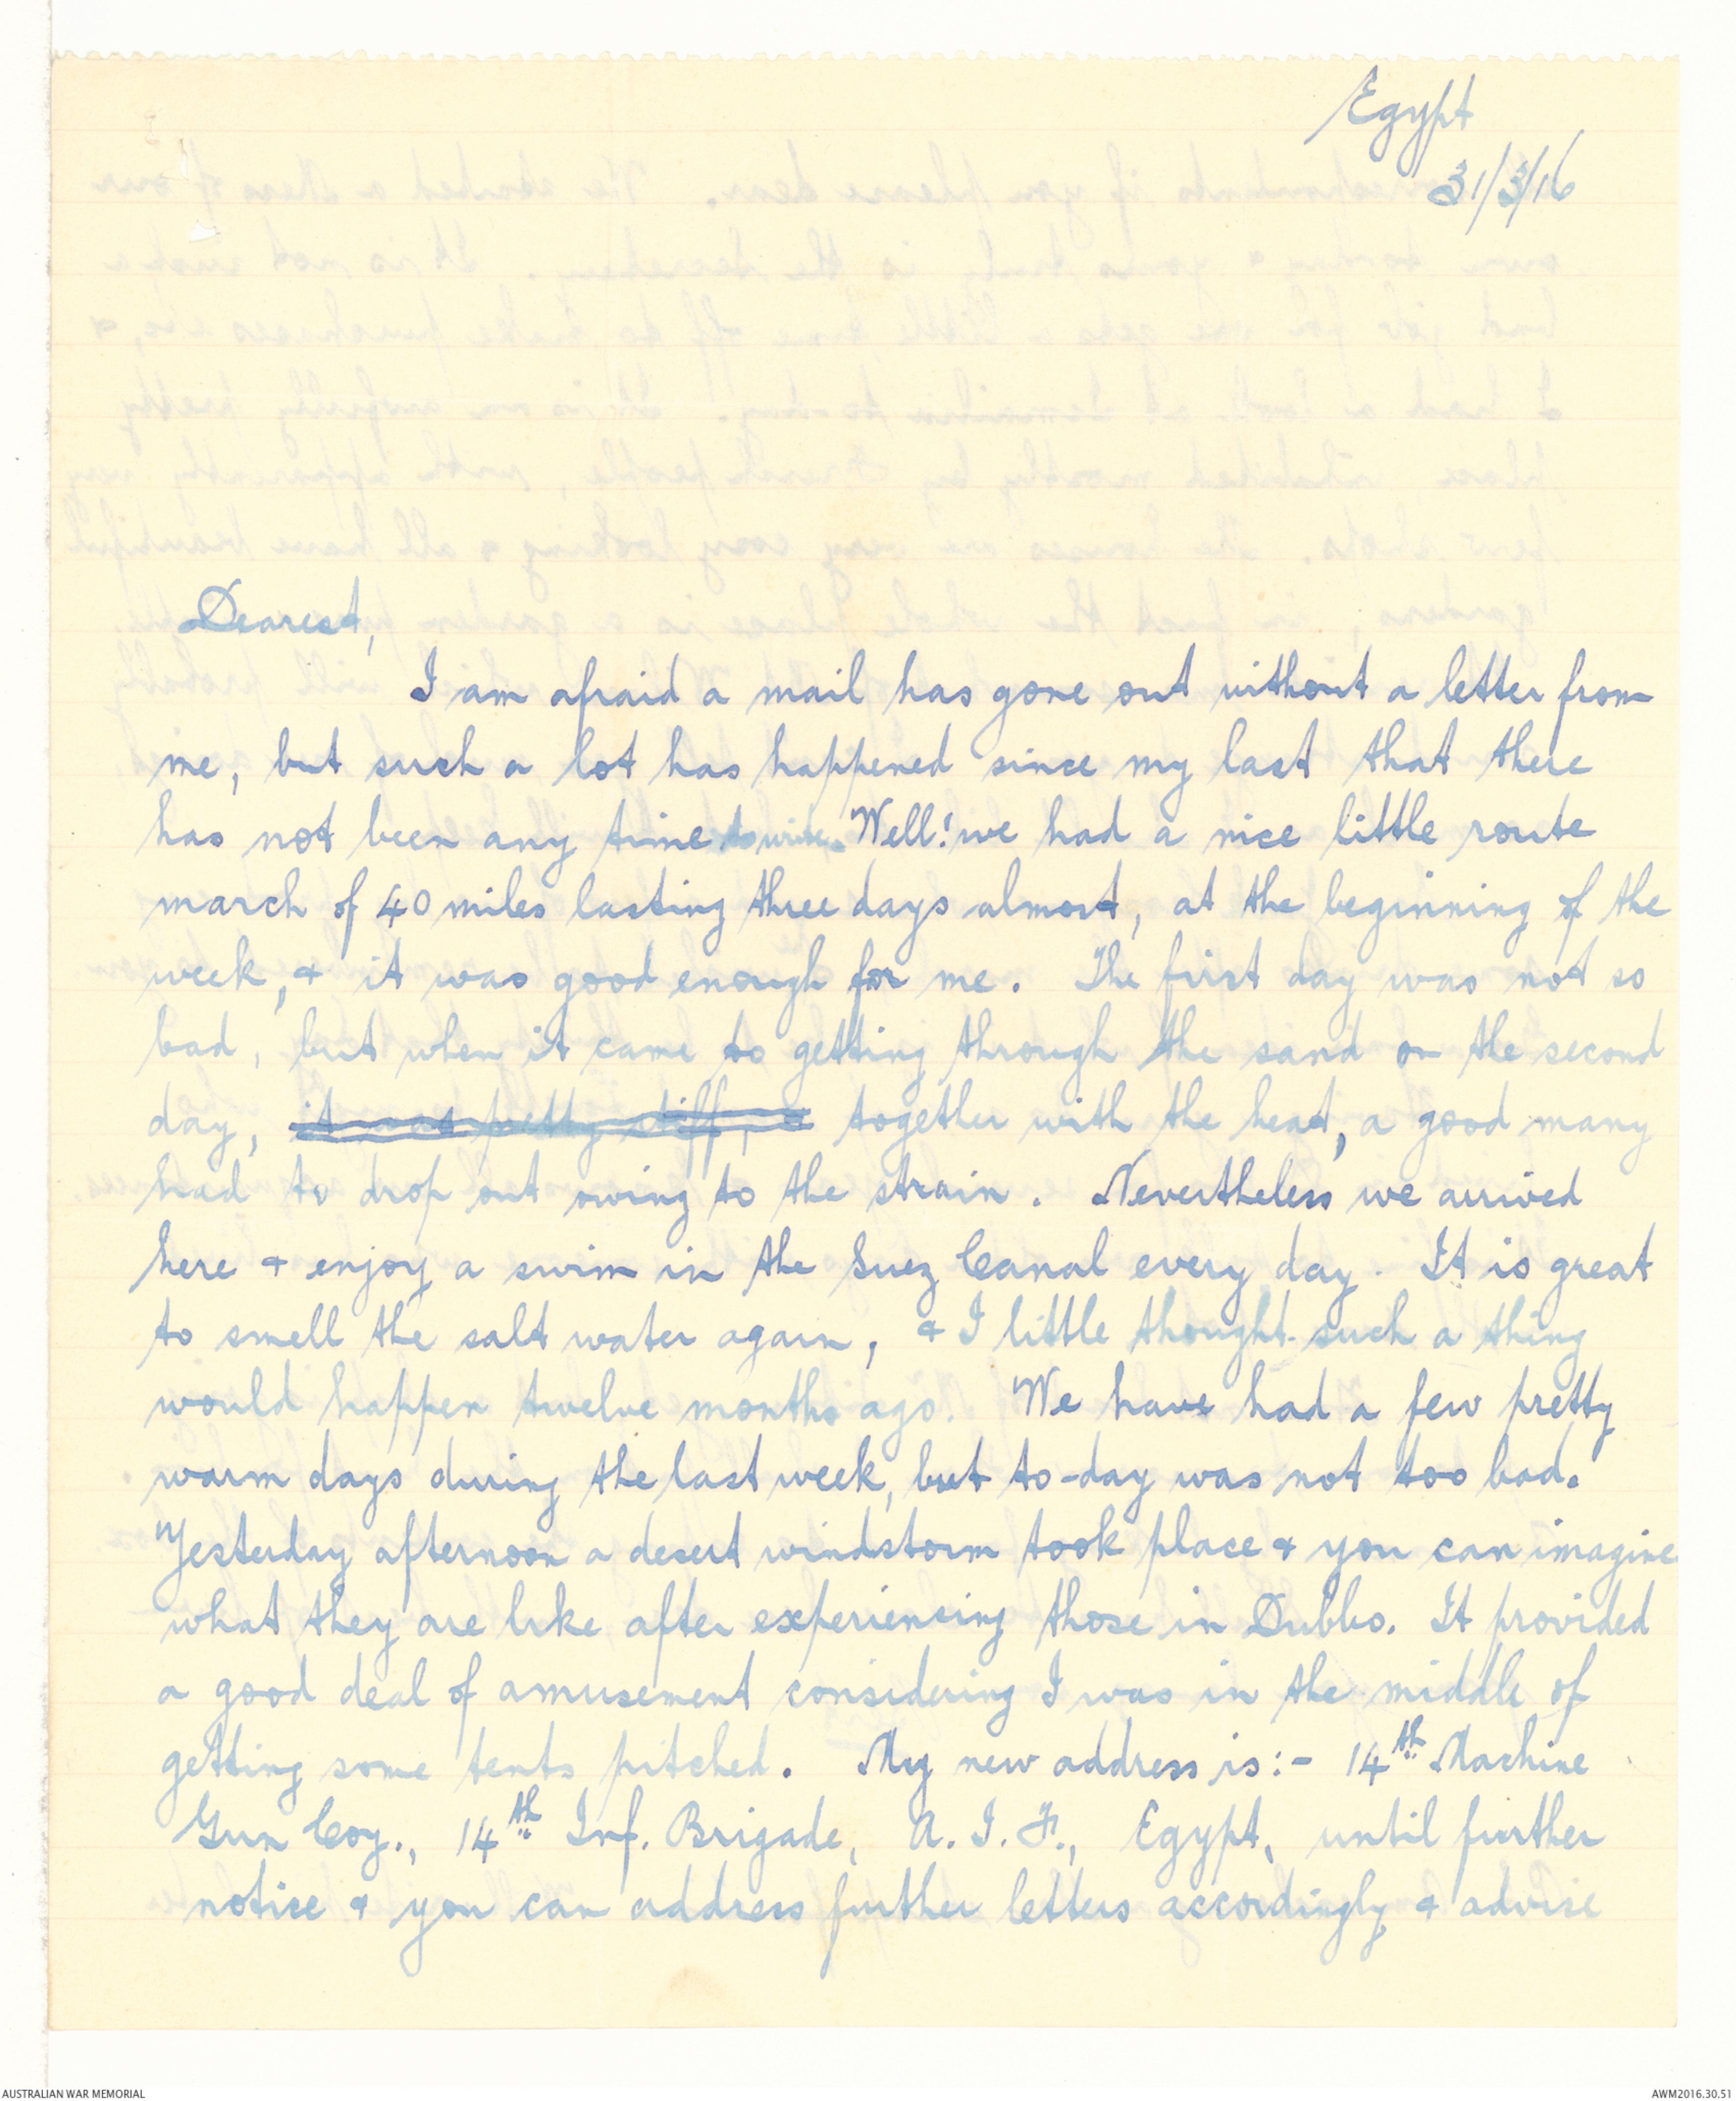 Egypt
31/3/16
Dearest,
I am afraid a mail has gone out without a letter from
me, but such a lot has happened since my last that there
has not been any time to write. Well! we had a nice little route
march of 40 miles lasting three days almost, at the beginning of the
week, & it was good enough for me. The first day was not so
bad, but when it came to getting through the sand on the second
day, it was pretty stiff, & together with the heat, a good many
had to drop out owing to the strain. Nevertheless we arrived
here & enjoy a swim in the Suez Canal every day. It is great
to smell the salt water again, & I little thought such a thing
would happen twelve months ago. We have had a few pretty
warm days during the last week, but to-day was not too bad.
Yesterday afternoon a desert windstorm took place & you can imagine
what they are like after experiencing those in Dubbo. It provided
a good deal of amusement considering I was in the middle of
getting some tents pitched. My new address is:- 14th Machine
Gun Coy., 14th Inf. Brigade, A.I.F., Egypt, until further
notice & you can address further letters accordingly & advise
AUSTRALIAN WAR MEMORIAL
AWM2016.30.51